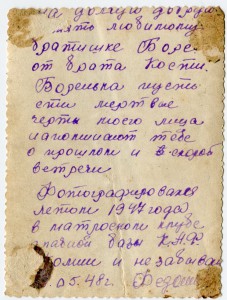 на долгую добрую
память любимому
братишке Боре
от брата Кости.
Боренька пусть
эти мертвые
черты моего лица
напоминают тебе
о прошлом и в скорой
встречи
Фотографировался
летом 1947 года
в матросском клубе
главной базы КАФ
помни и не забывай
.05.48г.